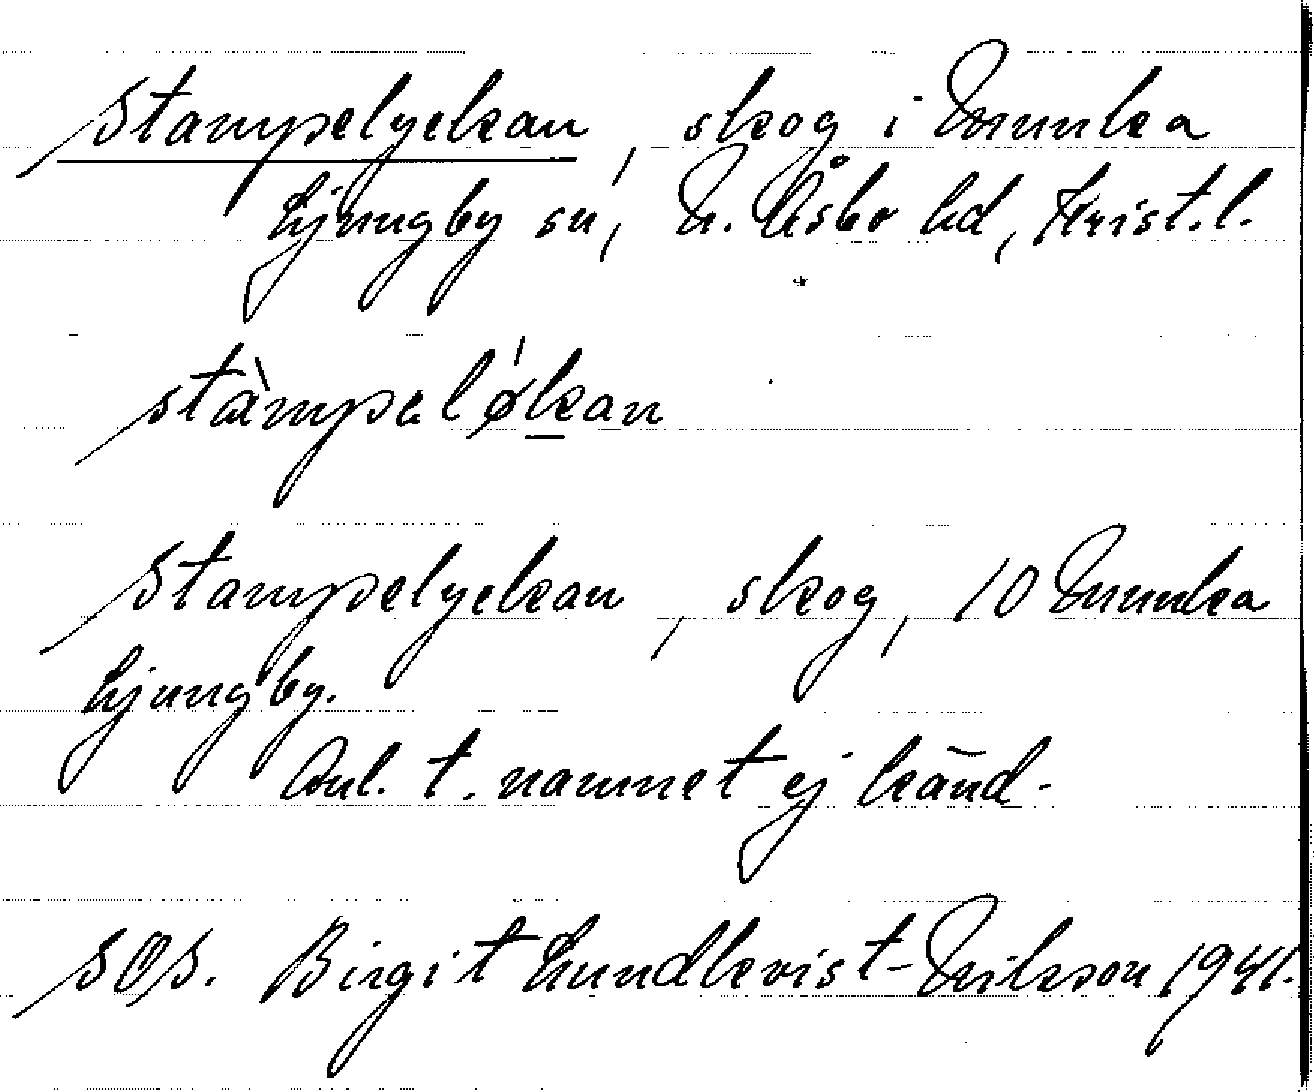 Stampelyckan, skog i Munka
Ljungby sn, N. Åsbo hd, Krist.l.
stàmpelǿkan
Stampelyckan, skog, 10 Munka
Ljungby.
Anl. t. namnet ej känd.
SOS. Birgit Lundkvist-Nilsson 1941.